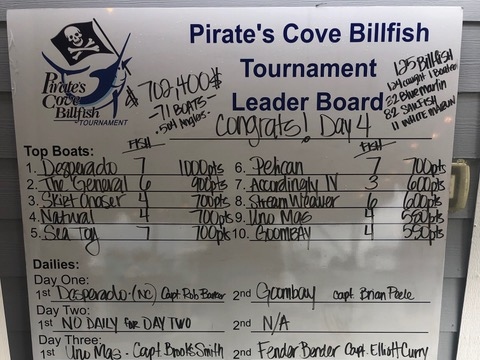 Pirate's Cove Billfish
Tournament
Leader Board
Pirate's
Cove
Billfish
TOURNAMENT
$702,400$
-71 BOATS-
-504 Anglers-
125 Billfish
124 caught 1 Boated
32 Blue Marlin
82 Sailfish
11 White Marlin
Congrats! Day 4
Top Boats: FISH FISH
1. Desperado 7 1000pts 6. Pelican 7 700pts
2. The General 6 900pts 7. Accordingly IV 3 600pts
3. Skirt Chaser 4 700pts 8. Stream Weaver 6 600pts
4. Natural 4 700pts 9. Uno Mas 4 550pts
5. Sea Toy 7 700pts 10. Goombay 4 550pts
Dailies:
Day One:
1st Desperado-(NC) Capt Rob Barker 2nd Goombay capt. Brian Peele
Day Two:
1st NO DAILY FOR DAY TWO 2nd N/A
Day Three:
1st Uno Mas - Capt. Brooks Smith 2nd Fender Bender Capt. Elliott Curry